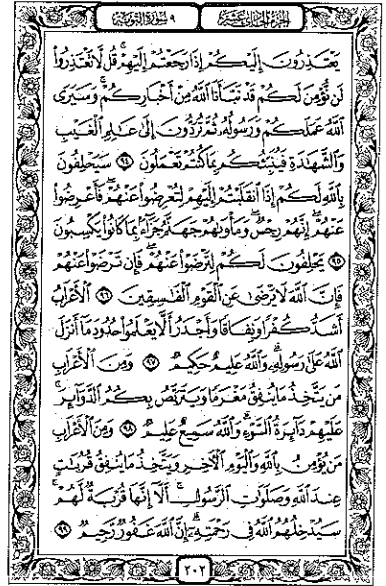 الجزء الحادي عشر ٩ سورة التوبة
يَعْتَذِرُونَ إِلَيْكُمْ إِذَا رَجَعْتُمْ إِلَيْهِمْ قُل لَّا تَعْتَذِرُوا۟
لَن نُّؤْمِنَ لَكُمْ قَدْ نَبَّأَنَا ٱللَّهُ مِنْ أَخْبَارِكُمْ وَسَيَرَى
ٱللَّهُ عَمَلَكُمْ وَرَسُولُهُۥ ثُمَّ تُرَدُّونَ إِلَىٰ عَـٰلِمِ ٱلْغَيْبِ
وَٱلشَّهَـٰدَةِ فَيُنَبِّئُكُم بِمَا كُنتُمْ تَعْمَلُونَ ٩٤ سَيَحْلِفُونَ
بِٱللَّهِ لَكُمْ إِذَا ٱنقَلَبْتُمْ إِلَيْهِمْ لِتُعْرِضُوا۟ عَنْهُمْ فَأَعْرِضُوا۟
عَنْهُمْ إِنَّهُمْ رِجْسٌ وَمَأْوَىٰهُمْ جَهَنَّمُ جَزَآءًۢ بِمَا كَانُوا۟ يَكْسِبُونَ
٩٥ يَحْلِفُونَ لَكُمْ لِتَرْضَوْا۟ عَنْهُمْ فَإِن تَرْضَوْا۟ عَنْهُمْ
فَإِنَّ ٱللَّهَ لَا يَرْضَىٰ عَنِ ٱلْقَوْمِ ٱلْفَـٰسِقِينَ ٩٦ ٱلْأَعْرَابُ
أَشَدُّ كُفْرًا وَنِفَاقًا وَأَجْدَرُ أَلَّا يَعْلَمُوا۟ حُدُودَ مَآ أَنزَلَ
ٱللَّهُ عَلَىٰ رَسُولِهِۦ وَٱللَّهُ عَلِيمٌ حَكِيمٌ ٩٧ وَمِنَ ٱلْأَعْرَابِ
مَن يَتَّخِذُ مَا يُنفِقُ مَغْرَمًا وَيَتَرَبَّصُ بِكُمُ ٱلدَّوَآئِرَ
عَلَيْهِمْ دَآئِرَةُ ٱلسَّوْءِ وَٱللَّهُ سَمِيعٌ عَلِيمٌ ٩٨ وَمِنَ ٱلْأَعْرَابِ
مَن يُؤْمِنُ بِٱللَّهِ وَٱلْيَوْمِ ٱلْـَٔاخِرِ وَيَتَّخِذُ مَا يُنفِقُ قُرُبَـٰتٍ
عِندَ ٱللَّهِ وَصَلَوَٰتِ ٱلرَّسُولِ أَلَآ إِنَّهَا قُرْبَةٌ لَّهُمْ
سَيُدْخِلُهُمُ ٱللَّهُ فِى رَحْمَتِهِۦٓ إِنَّ ٱللَّهَ غَفُورٌ رَّحِيمٌ ٩٩
٢٠٢